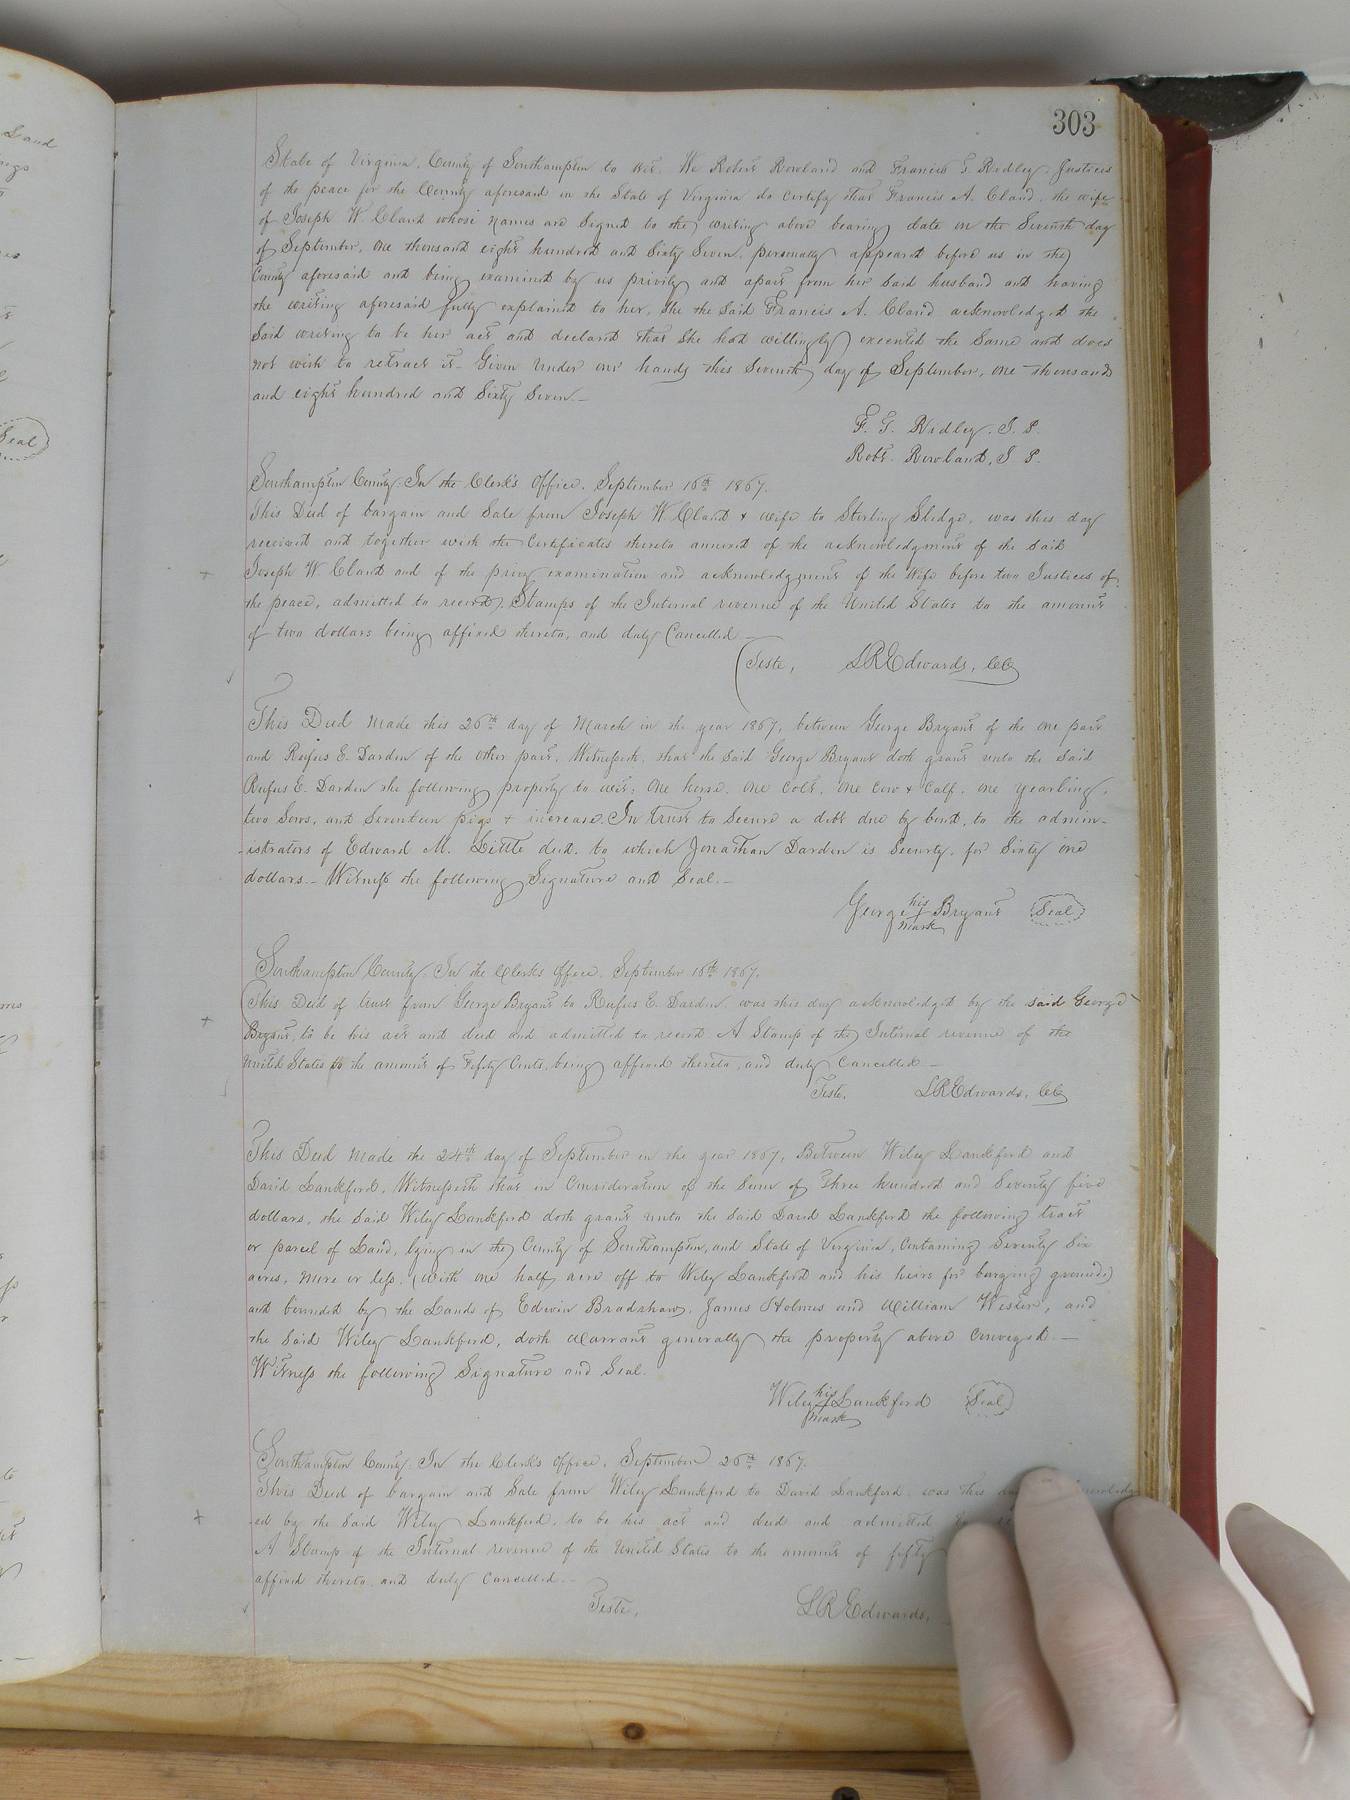 303
State of Virginia, County of Southampton to wit: We Robert Rowland and Francis G Ridley Justices
of the peace for the County aforesaid in the State of Virginia do certify that Francis A. Claud, the wife
of Joseph W. Claud whose names are signed to the writing above bearing date on the Seventh day
of September, one thousand eight hundred and Sixty Seven, personally appeared before us in the
County aforesaid and being examined by us privily and apart from her said husband and having
the writing aforesaid fully explained to her, she the said Francis A. Claud acknowledged the
said writing to be her act and declared that she had willingly executed the same and does
not wish to retract it. Given under our hands this Seventh day of September, one thousand
and eight hundred and Sixty Seven.—
F. G. Ridley. J. P.
Robt. Rowland, J. P.
Southampton County. In the Clerk's Office, September 16th 1867.
This Deed of bargain and Sale from Joseph W. Claud & wife to Sterling Sledge, was this day
received and together with the Certificates thereto annexed of the acknowledgment of the said
Joseph W Claud and of the privy examination and acknowledgment of the Wife before two Justices of
the peace, admitted to record. Stamps of the Internal revenue of the United States to the amount
of two dollars being affixed thereto, and duly Cancelled—
Teste, L R Edwards, CC
This Deed made this 26th day of March in the year 1867, between George Bryant of the one part
and Rufus E. Darden of the other part, Witnesseth, that the said George Bryant doth grant unto the said
Rufus E. Darden the following property to wit: One horse, one Colt, one Cow & Calf, one yearling,
two Sows, and Seventeen pigs & increase. In trust to secure a debt due by bond, to the admin-
-istrators of Edward M. Little decd. to which Jonathan Darden is Security, for Sixty one
dollars.— Witness the following Signature and Seal.—
George his mark Bryant Seal
Southampton County. In the Clerk's Office, September 16th 1867.
This Deed of trust from George Bryant to Rufus E. Darden, was this day acknowledged by the said George
Bryant, to be his act and deed and admitted to record. A Stamp of the Internal revenue of the
United States to the amount of Fifty Cents, being affixed thereto, and duly Cancelled—
Teste, L R Edwards, CC
This Deed made the 24th day of September in the year 1867, Between Wiley Lankford and
David Lankford, Witnesseth that in Consideration of the Sum of Three hundred and Seventy five
dollars, the said Wiley Lankford doth grant unto the said David Lankford the following tract
or parcel of Land, lying in the County of Southampton, and State of Virginia, Containing Seventy Six
acres, more or less, (with one half acre off to Wiley Lankford and his heirs for burying ground)
and bounded by the Lands of Edwin Bradshaw, James Holmes and William Wester, and
the said Wiley Lankford, doth Warrant generally the property above Conveyed.—
Witness the following Signature and Seal.
Wiley his mark Lankford Seal
Southampton County. In the Clerk's Office, September 26th 1867.
This Deed of bargain and Sale from Wiley Lankford to David Lankford, was this
-ed by the said Wiley Lankford, to be his act and deed and admitted
A Stamp of the Internal revenue of the United States to the amount of fifty
affixed thereto and duly Cancelled.—
Teste, L R Edwards,